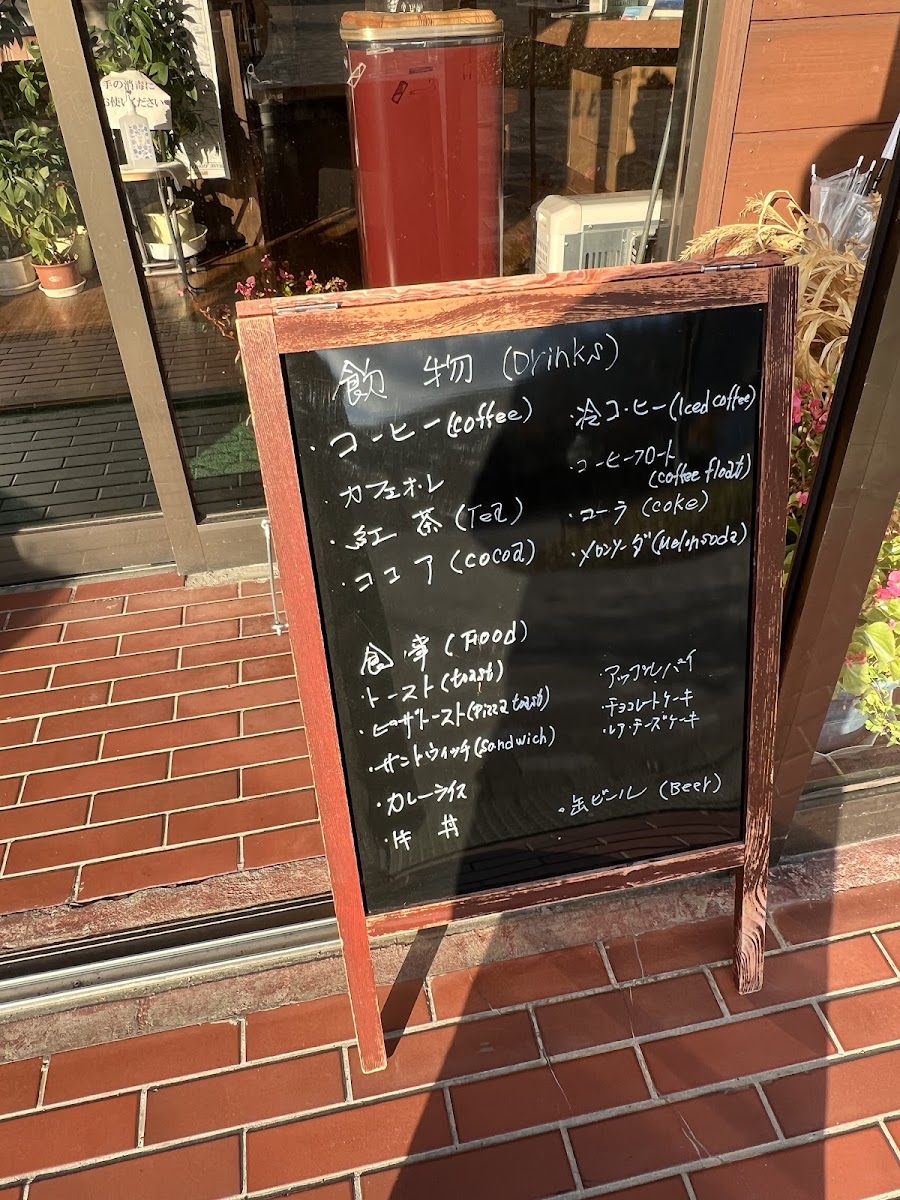 手の消毒に
お使いください
飲物 (Drinks)
・コーヒー (coffee)
・カフェオレ
・紅茶 (Tea)
・ココア (cocoa)
・冷コーヒー (Iced coffee)
・コーヒーフロート
(coffee float)
・コーラ (coke)
・メロンソーダ (Melonsoda)
食事 (Food)
・トースト (toast)
・ピーザトースト (Pizza toast)
・サンドウィッチ (sandwich)
・カレーライス
・牛丼
・アップルパイ
・チョコレートケーキ
・レアチーズケーキ
・缶ビール (Beer)